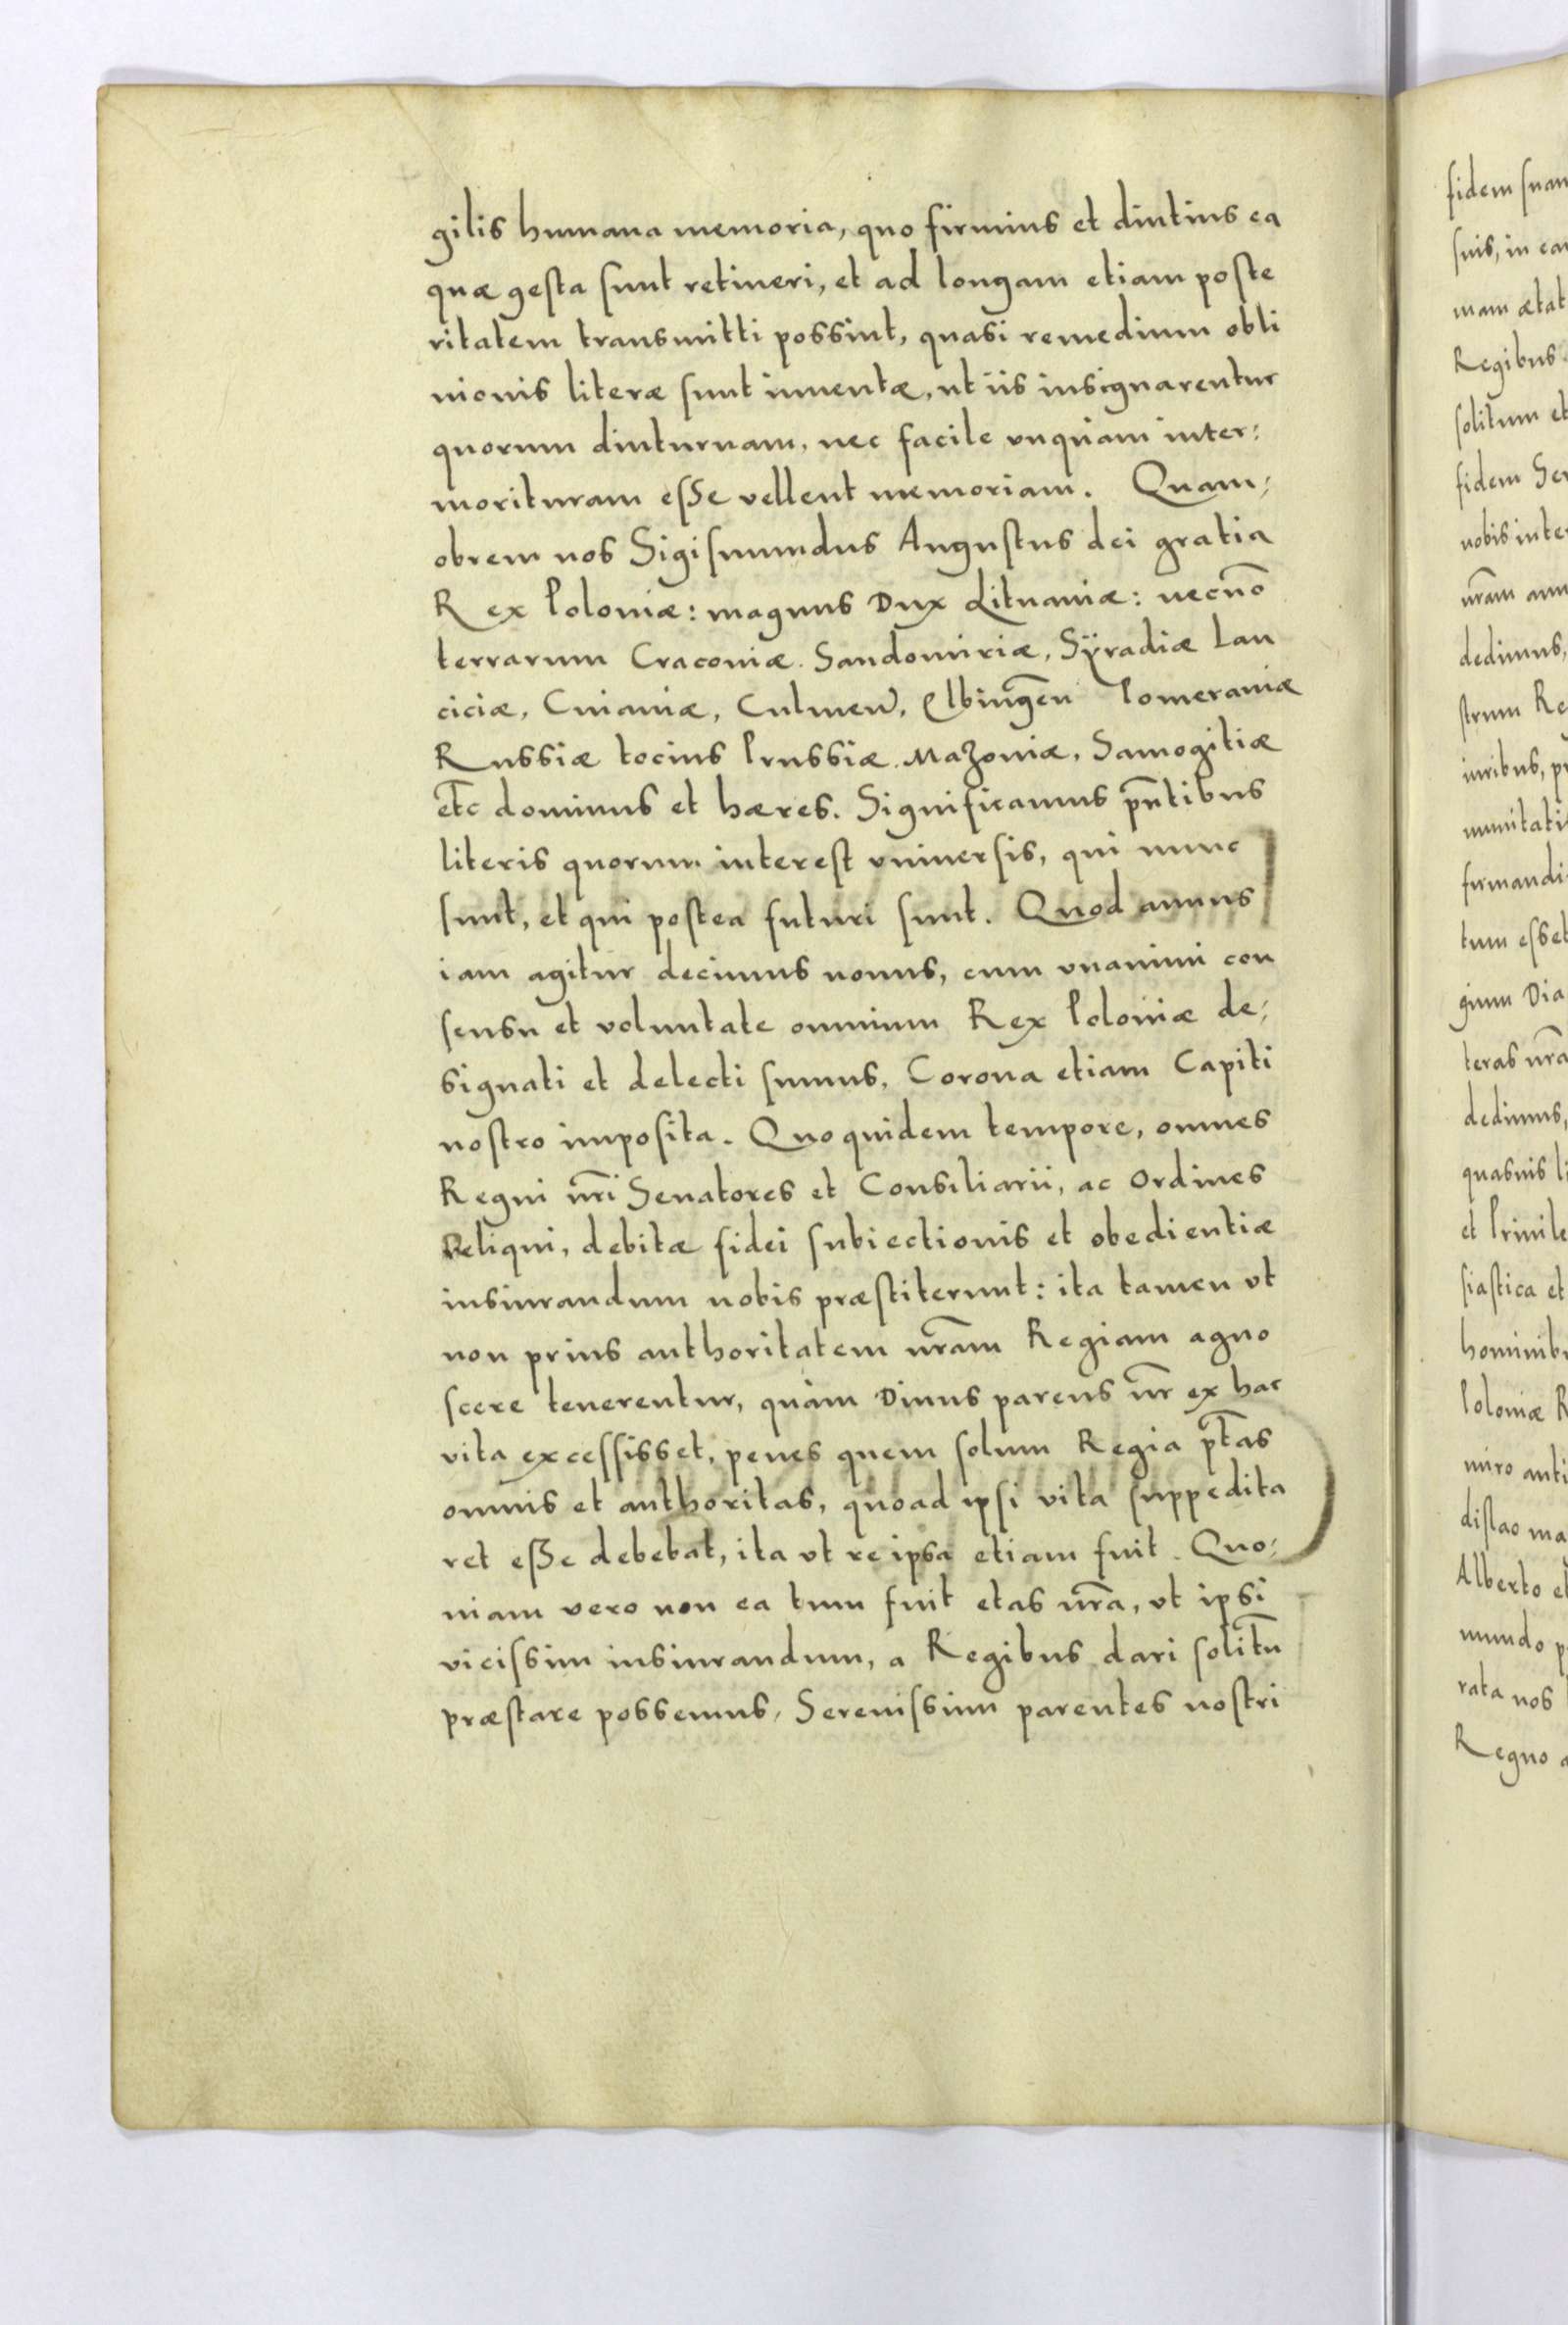 gilis humana memoria, quo firmius et diutius ea
quæ gesta sunt retineri, et ad longam etiam poste
ritatem transmitti possint, quasi remedium obli
uionis literæ sunt inuentæ, ut iis insignarentur
quorum diuturnam, nec facile vnquam inter:
morituram esse vellent memoriam. Quam:
obrem nos Sigismundus Augustus dei gratia
Rex Poloniæ: magnus Dux Lituaniæ: necnō
terrarum Cracouiæ. Sandomiriæ, Sÿradiæ Lan
ciciæ, Cuiauiæ, Culmen̄, Elbingēn Pomeraniæ
Russiæ tocius Prussiæ. Mazouiæ, Samogitiæ
etc̄ dominus et hæres. Significamus pn̄tibus
literis quorum interest vniuersis, qui nunc
sunt, et qui postea futuri sunt. Quod annus
iam agitur decimus nonus, cum vnanimi con
sensu et voluntate omnium Rex Poloniæ de:
signati et delecti sumus, Corona etiam Capiti
nostro imposita. Quo quidem tempore, omnes
Regni nr̄i Senatores et Consiliarii, ac Ordines
Reliqui, debitæ fidei subiectionis et obedientiæ
insiurandum nobis præstiterunt: ita tamen vt
non prius authoritatem nr̄am Regiam agno
scere tenerentur, quàm Diuus parens nr̄ ex hac
vita excessisset, penes quem solum Regia pt̄as
omnis et authoritas, quoad ipsi vita suppedita
ret esse debebat, ita vt re ipsa etiam fuit. Quo:
niam vero non ea tum fuit etas nr̄a, vt ipsi
vicissim insiurandum, a Regibus dari solitū
præstare possemus, Serenissimi parentes nostri
fidem suam
suis, in ea
mam ætat
Regibus
solitum et
fidem Ser
nobis inte
nr̄am ann
dedimus,
strum Re
iuribus, pr
munitati
firmandi
tum esset
gium Dia
teras nr̄a
dedimus,
quasuis li
et Priuile
siastica et
hominib
Poloniæ R
miro anti
dislao ma
Alberto et
mundo p
rata nos
Regno a